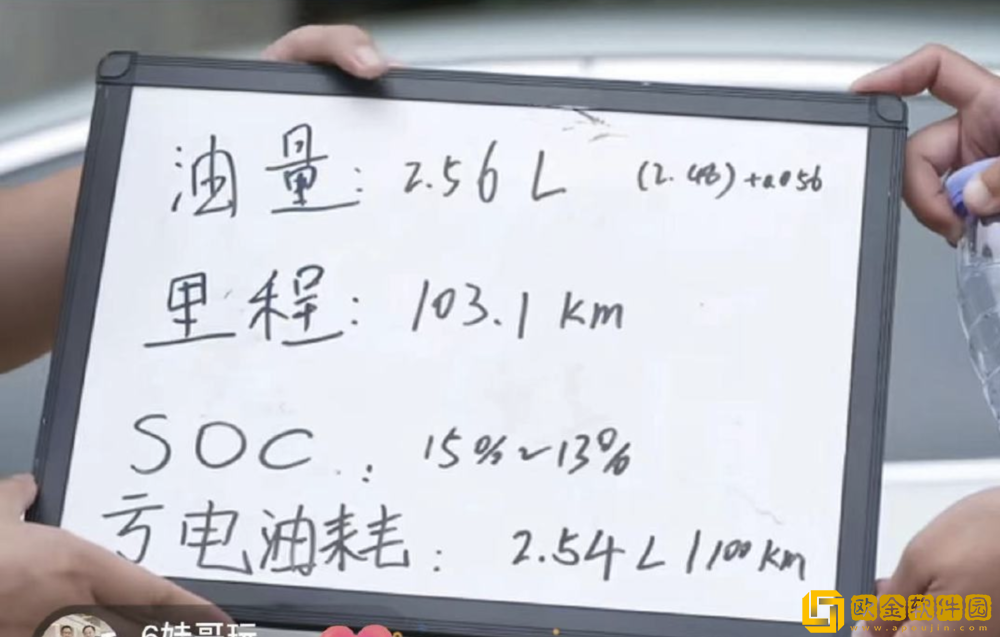 油量: 2.56 L (2.48)+0.056
里程: 103.1 km
SOC.: 15%~13%
亏电油耗: 2.54L/100km
6妹哥玩
欧金软件园